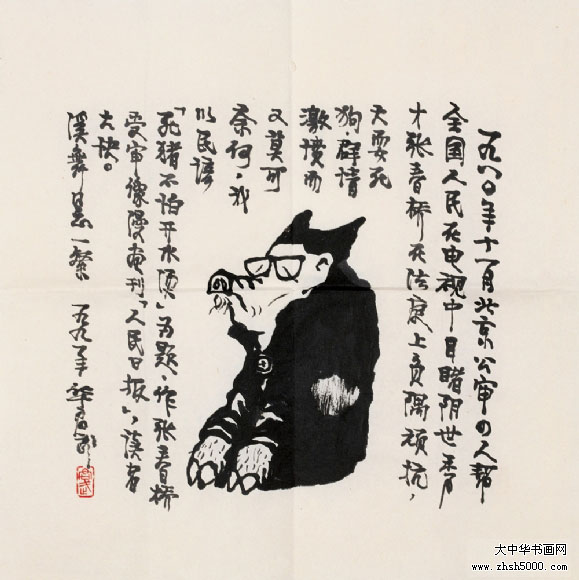 一九八〇年十一月北京公审四人幫
全国人民在电视中目睹阴世秀
才张春桥在法庭上负隅顽抗，
大耍死
狗，群情
激愤而
又莫可
奈何，我
以民谚
「死猪不怕开水烫」为题，作张春桥
受审像漫画刊「人民日报」，读者
大快。
溪舞墨一粲 一九九年
大中华书画网
www.zhsh5000.com